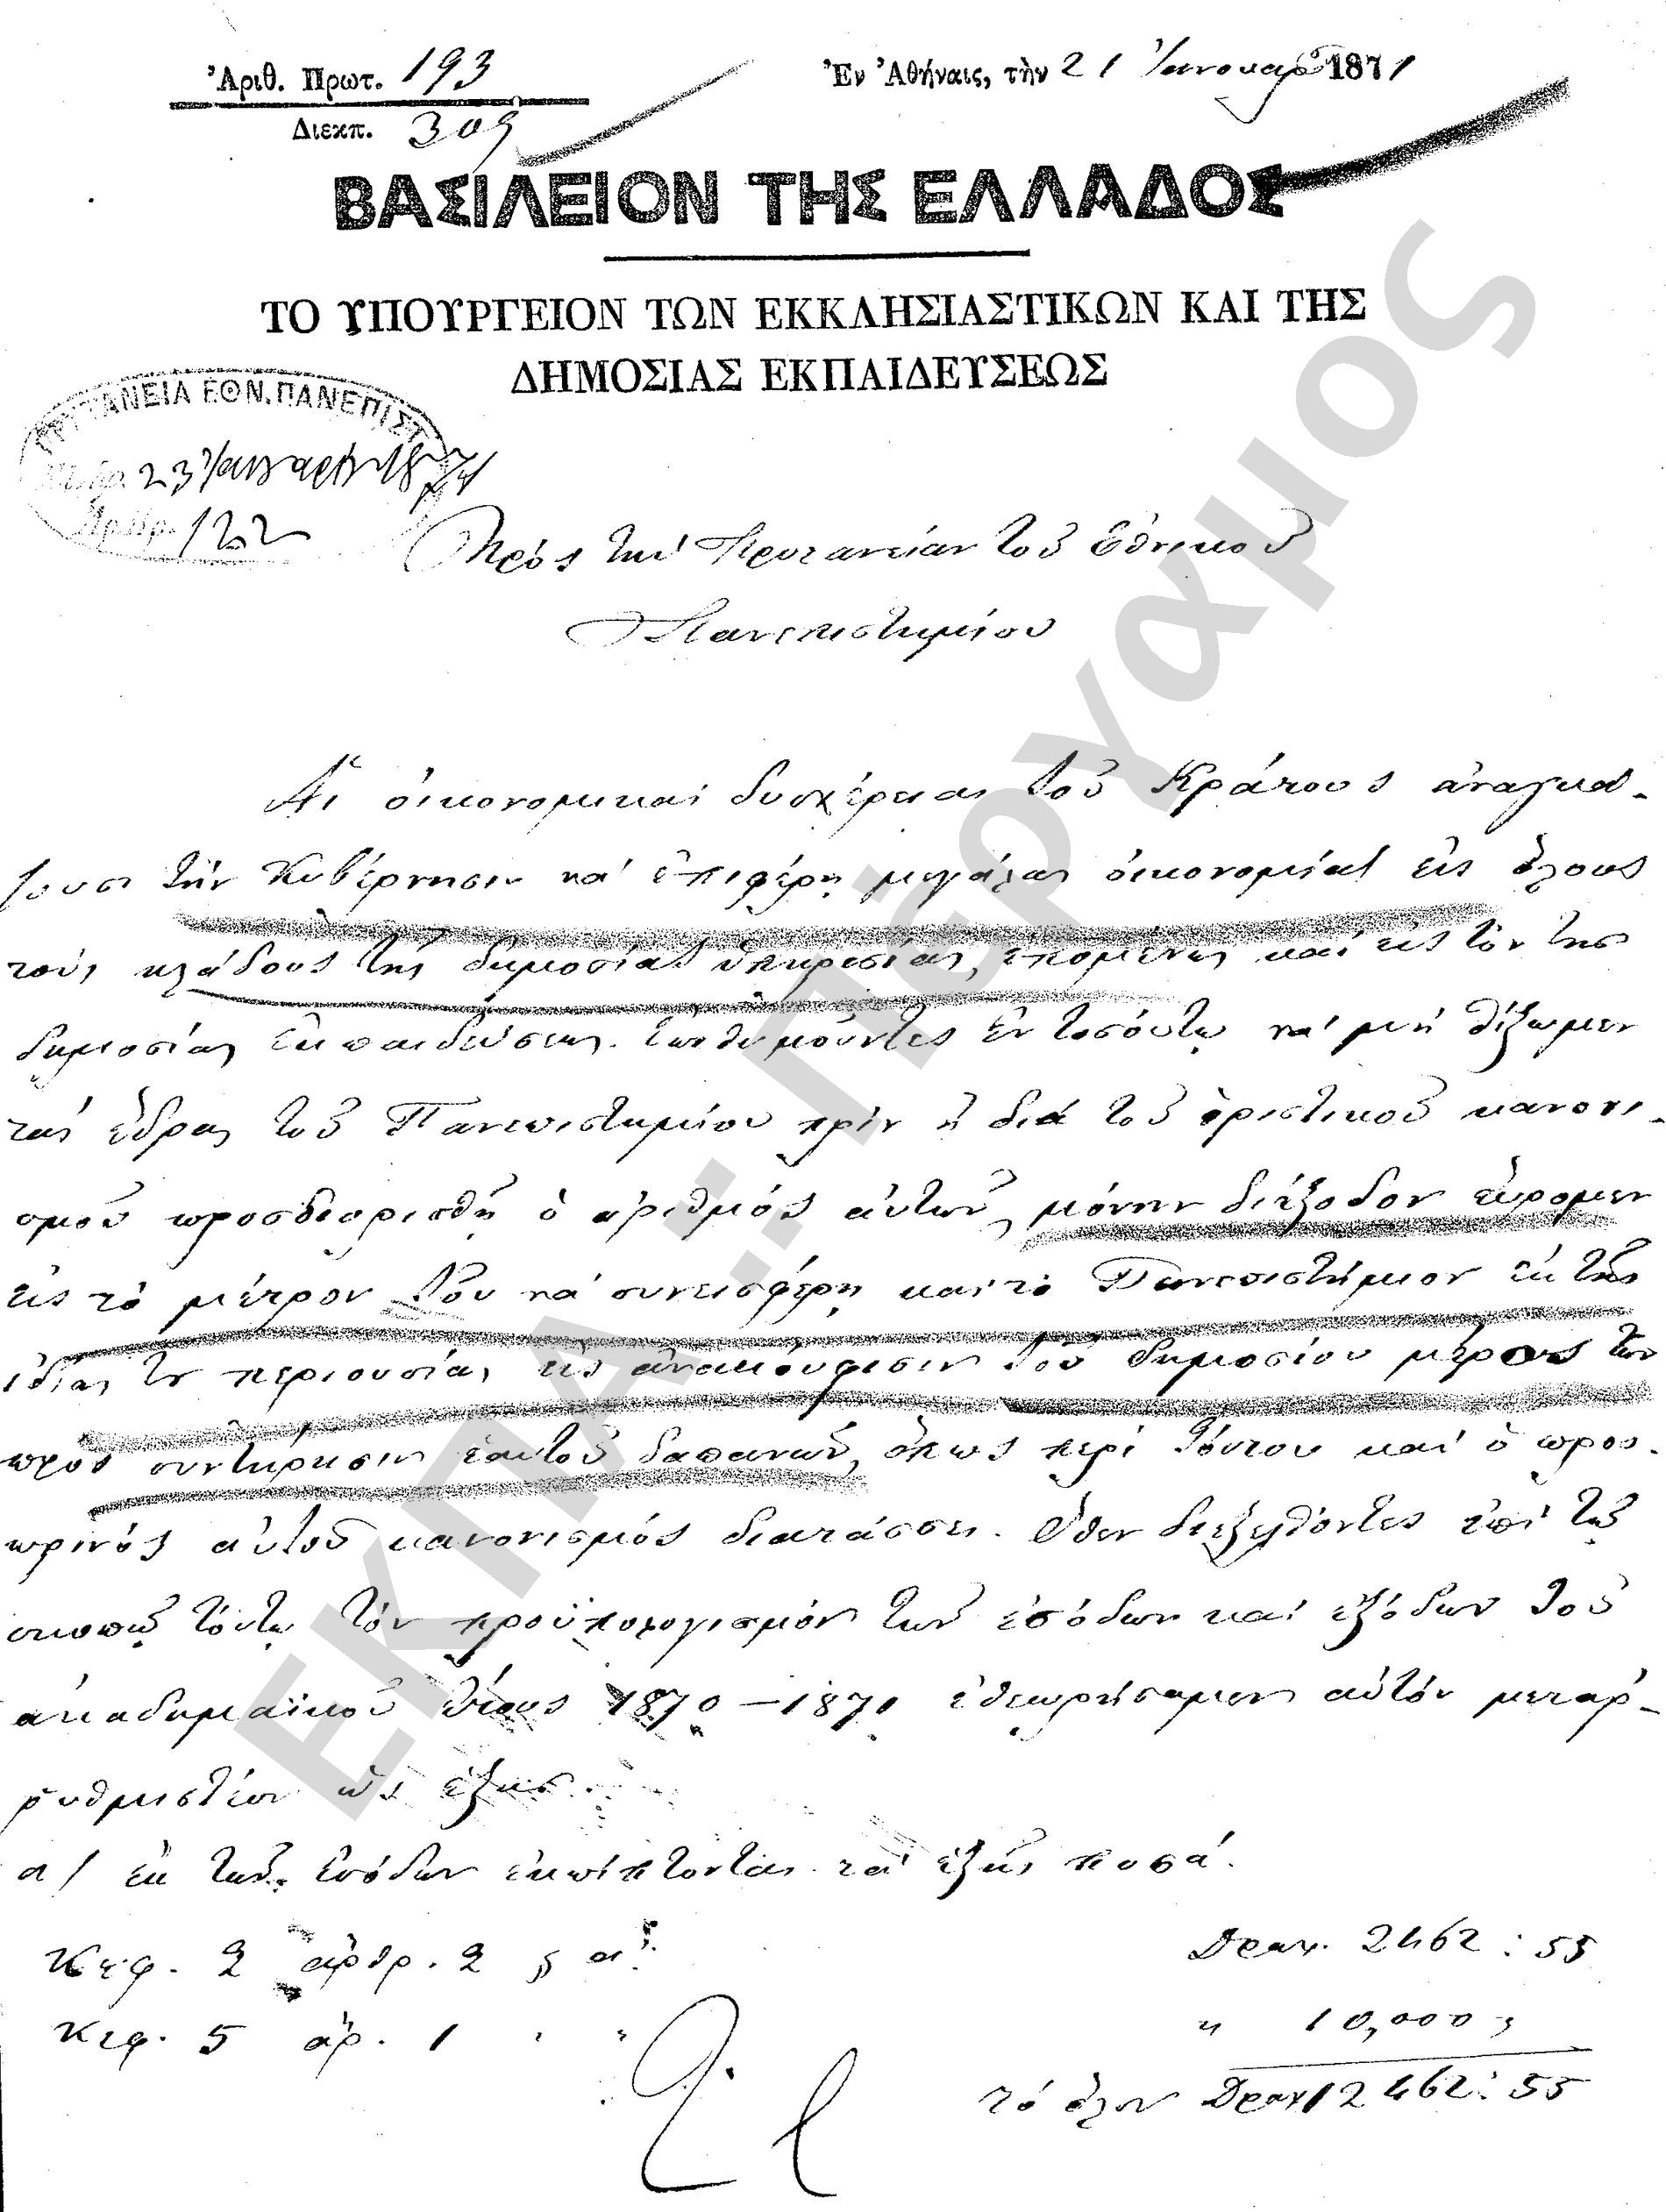 Ἀριθ. Πρωτ. 193
Διεκπ. 309
Ἐν Ἀθήναις, τὴν 21 Ἰανουαρ 1871
ΒΑΣΙΛΕΙΟΝ ΤΗΣ ΕΛΛΑΔΟΣ
ΤΟ ΥΠΟΥΡΓΕΙΟΝ ΤΩΝ ΕΚΚΛΗΣΙΑΣΤΙΚΩΝ ΚΑΙ ΤΗΣ
ΔΗΜΟΣΙΑΣ ΕΚΠΑΙΔΕΥΣΕΩΣ
ΠΡΥΤΑΝΕΙΑ ΕΘΝ. ΠΑΝΕΠΙΣΤ
23 Ἰανουαρίου 1871
122
Πρὸς τὴν Πρυτανείαν τοῦ Ἐθνικοῦ
Πανεπιστημίου
Αἱ οἰκονομικαὶ δυσχέρειαι τοῦ Κράτους ἀναγκά-
ζουσι τὴν Κυβέρνησιν νὰ ἐπιφέρῃ μεγάλας οἰκονομίας εἰς ὅλους
τοὺς κλάδους τῆς δημοσίας ὑπηρεσίας, ἑπομένως καὶ εἰς τὸν τῆς
δημοσίας ἐκπαιδεύσεως. Ἐπιθυμοῦντες ἐν τοσούτῳ νὰ μὴ θίξωμεν
τὰς ἕδρας τοῦ Πανεπιστημίου πρὶν ἢ διὰ τοῦ ὁριστικοῦ κανονι-
σμοῦ προσδιορισθῇ ὁ ἀριθμὸς αὐτῶν, μόνην διέξοδον εὕρομεν
εἰς τὸ μέτρον τοῦ νὰ συνεισφέρῃ καὶ τὸ Πανεπιστήμιον ἐκ τῆς
ἰδίας του περιουσίας εἰς ἀνακούφισιν τοῦ δημοσίου μέρος τῶν
πρὸς συντήρησιν ἑαυτοῦ δαπανῶν, ὅπως περὶ τούτου καὶ ὁ προσ-
ωρινὸς αὐτοῦ κανονισμὸς διατάσσει. Ὅθεν διεξελθόντες ἐπὶ τῷ
σκοπῷ τούτῳ τὸν προϋπολογισμὸν τῶν ἐσόδων καὶ ἐξόδων τοῦ
ἀκαδημαϊκοῦ ἔτους 1870 – 1871 ἐθεωρήσαμεν αὐτὸν μεταρ-
ρυθμιστέον ὡς ἑξῆς.
α/ ἐκ τῶν ἐσόδων ἐκπίπτονται τὰ ἑξῆς ποσά.
Κεφ. 2 ἄρθρ. 2 § α Δραχ. 2462 : 55
Κεφ. 5 ἄρ. 1 " 10,000 "
τὸ ὅλον Δραχ 12462 : 55
ΕΚΠΑ.: Πέργαμος